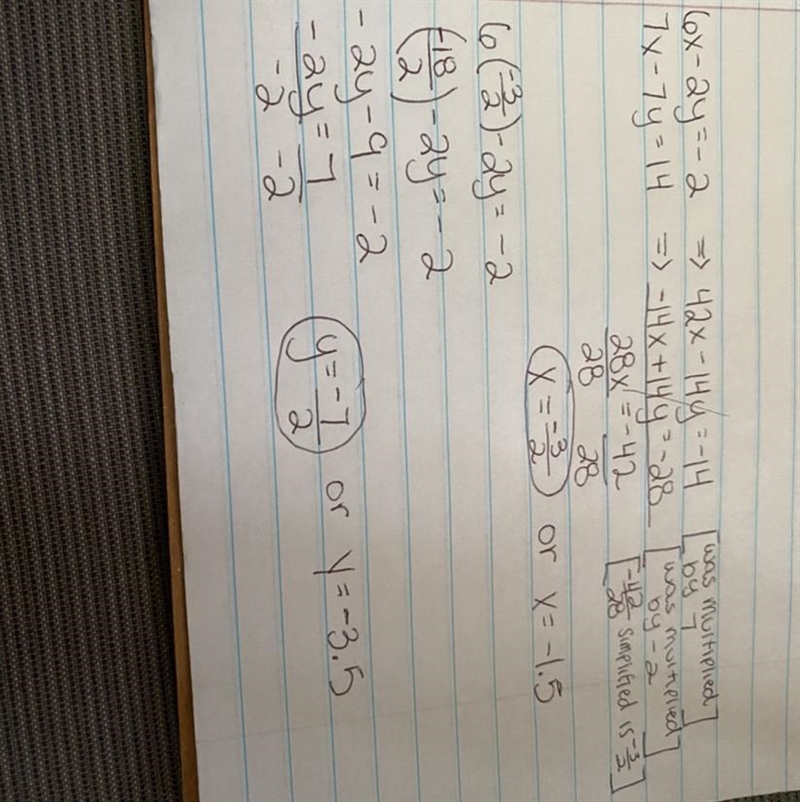 6x - 2y = -2 ⇒ 42x - 14y = -14 [was multiplied by 7]
7x - 7y = 14 ⇒ -14x + 14y = -28 [was multiplied by -2]
28x = -42 [-42/28 simplified is -3/2]
28 28
x = -3/2 or x = -1.5
6(-3/2) - 2y = -2
(-18/2) - 2y = -2
-2y - 9 = -2
-2y = 7
-2 -2
y = -7/2 or y = -3.5